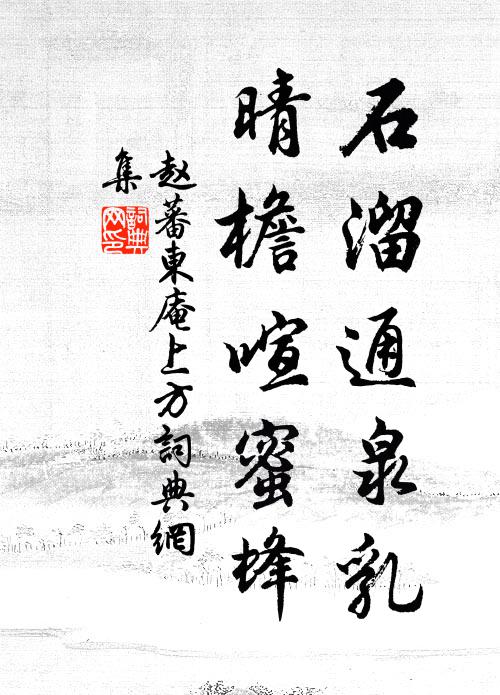 石溜通泉乳
晴檐喧蜜蜂
赵蕃東庵上方詞典網
集
詞典网印